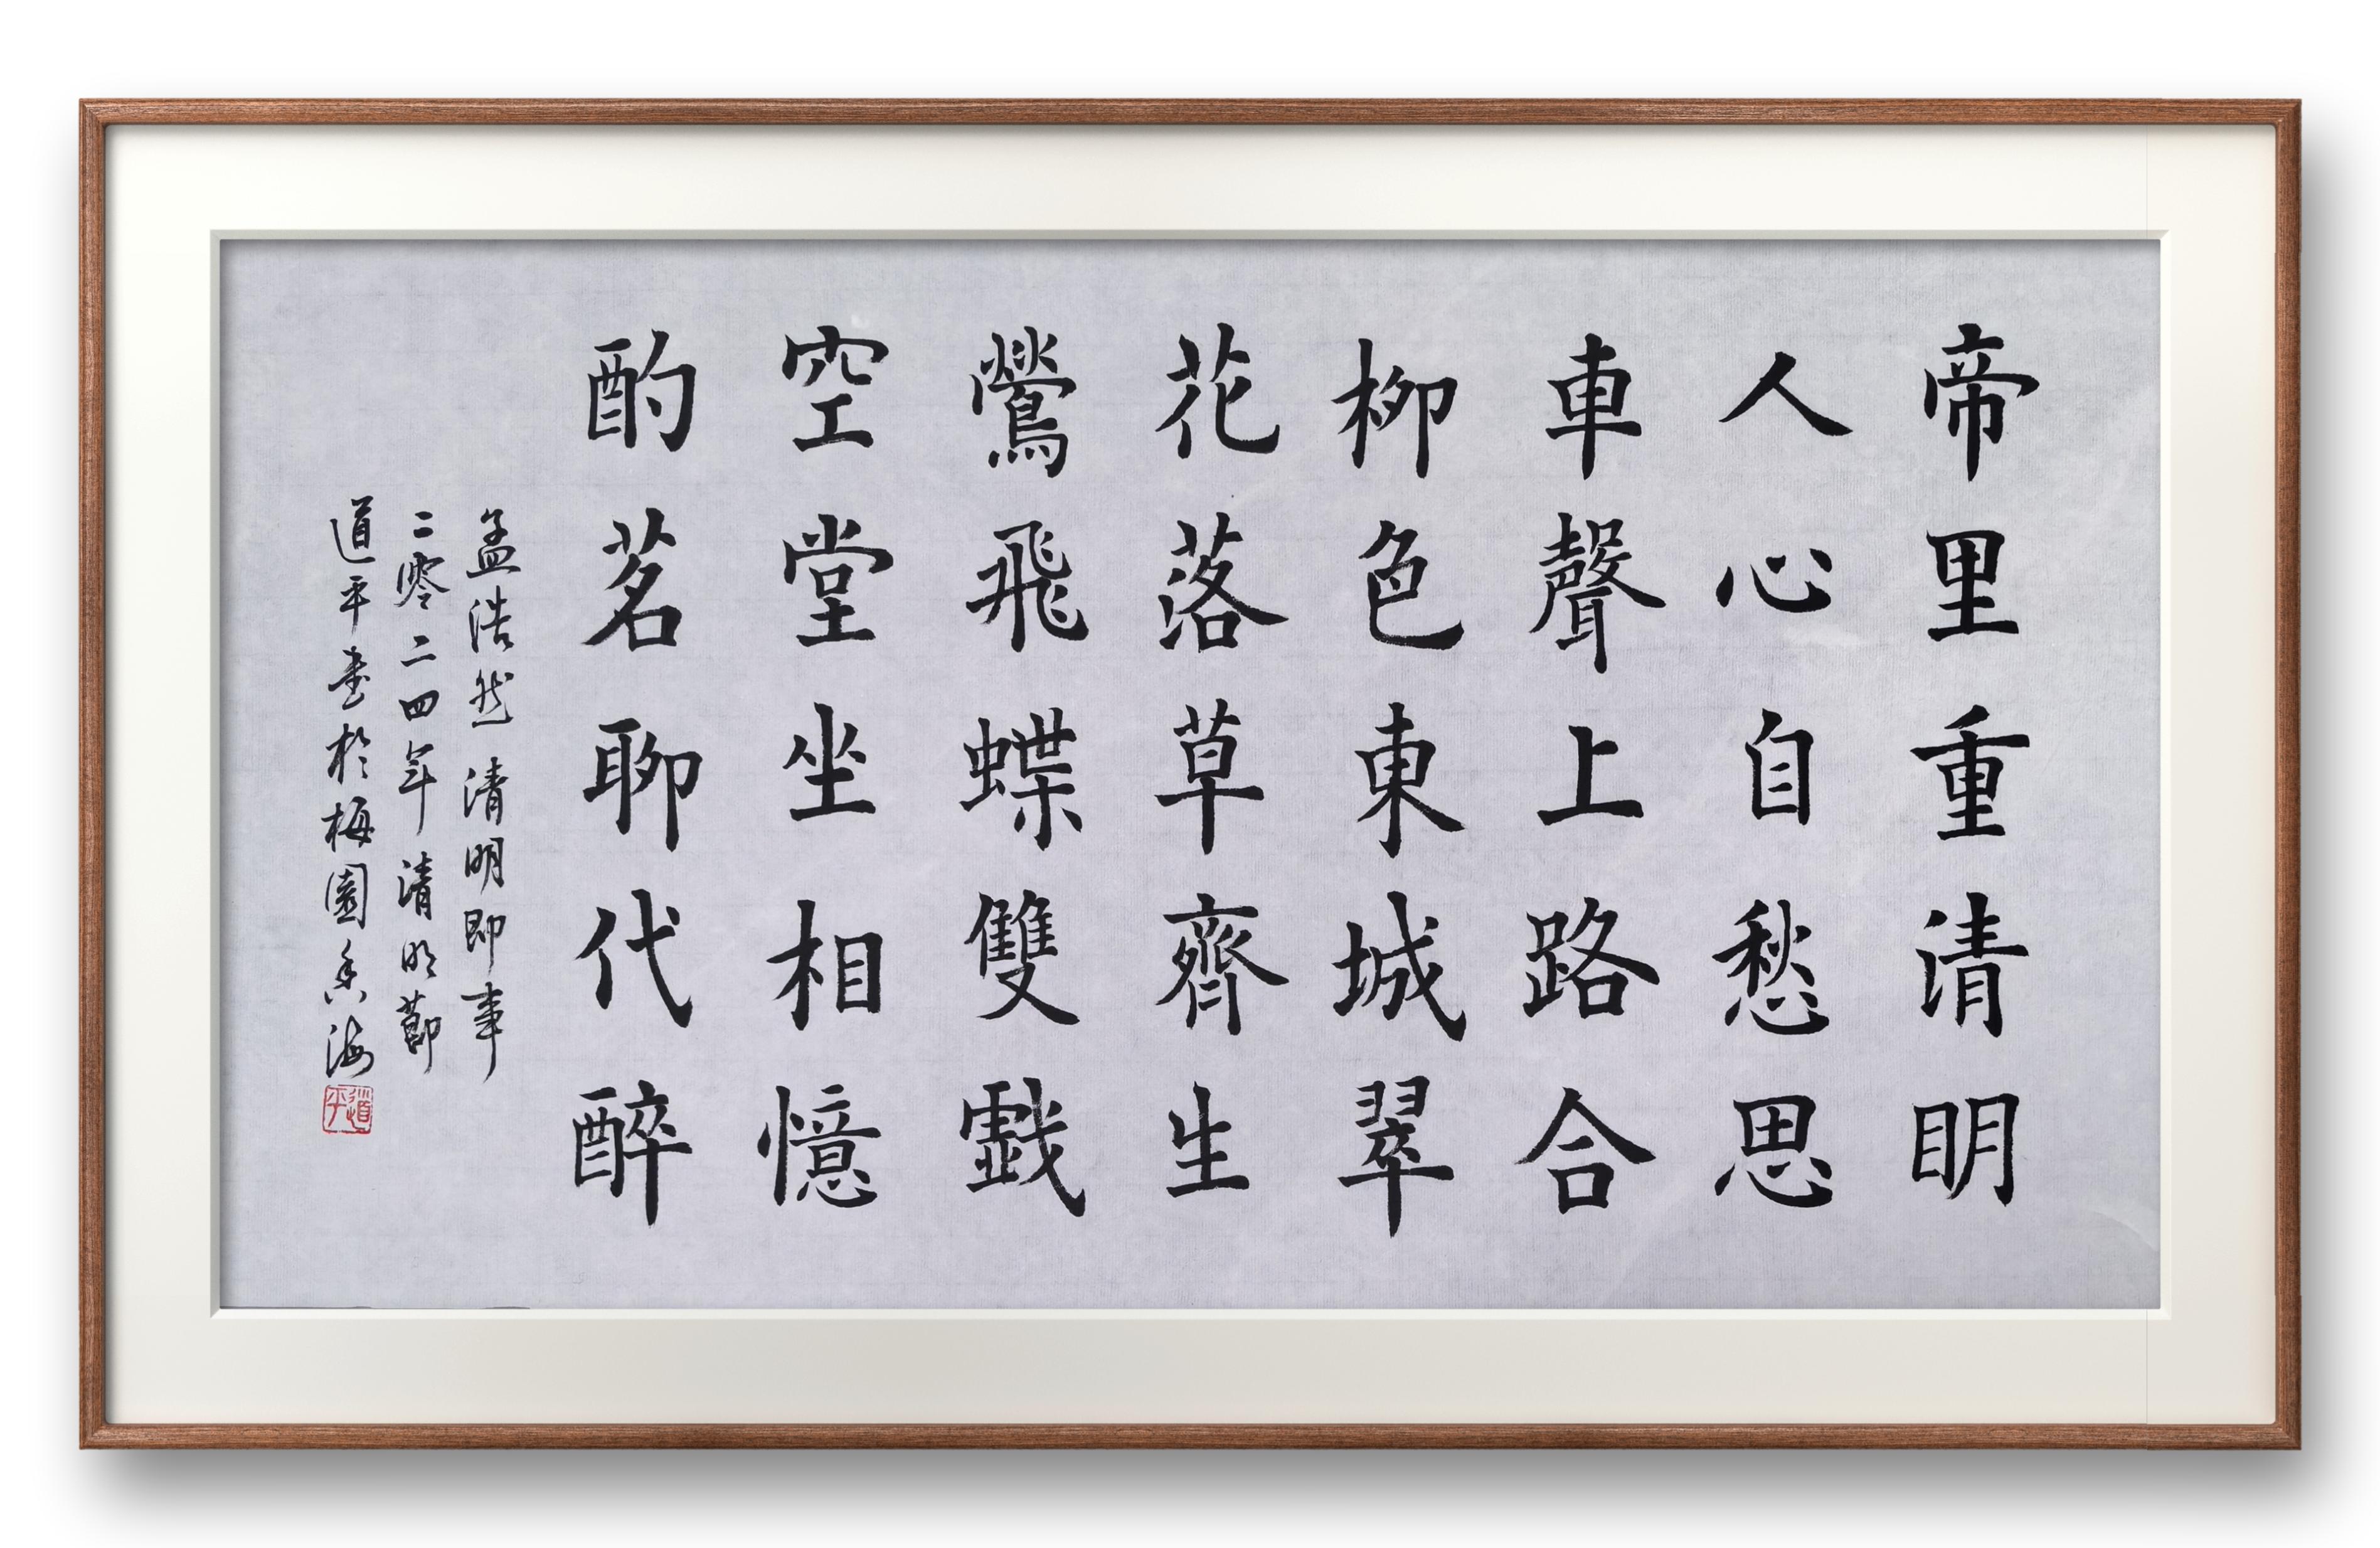 帝里重清明
人心自愁思
車聲上路合
柳色東城翠
花落草齊生
鶯飛蝶雙戲
空堂坐相憶
酌茗聊代醉
孟浩然 清明即事
二零二四年清明節
道平書於梅園香海
道平